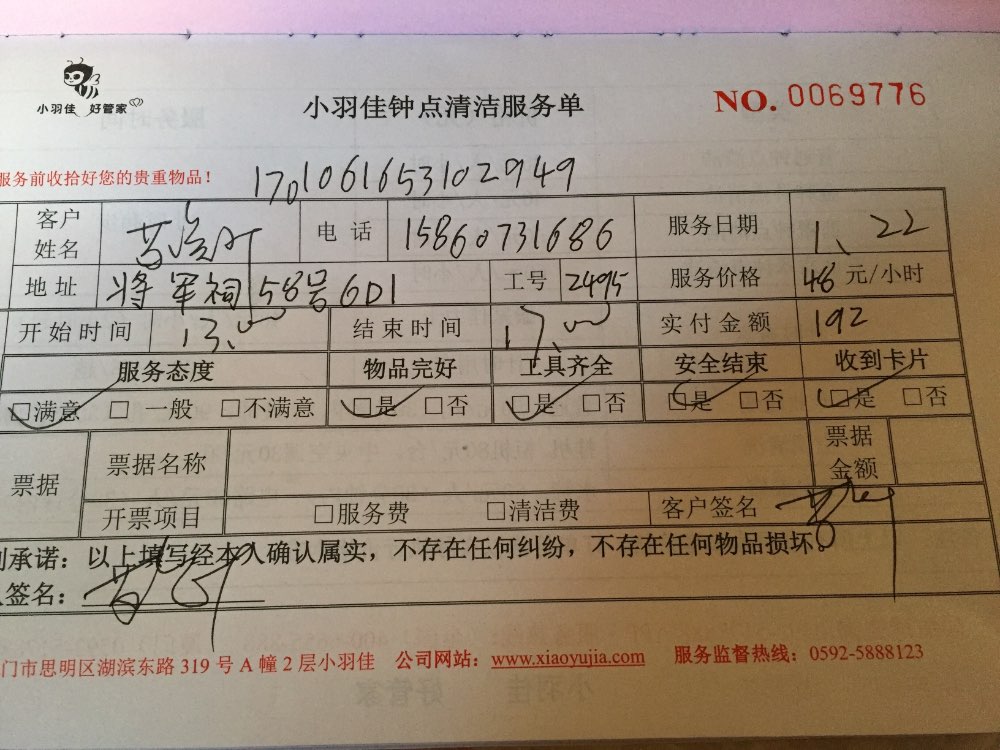 小羽佳 好管家
小羽佳钟点清洁服务单
NO. 0069776
服务前收拾好您的贵重物品！
1701061653102949
客户姓名 电话 15860731686 服务日期 1、22
地址 将军祠58号6D1 工号 2495 服务价格 48 元/小时
开始时间 13:00 结束时间 17:00 实付金额 192
服务态度 物品完好 工具齐全 安全结束 收到卡片
□满意 □ 一般 □不满意 □是 □否 □是 □否 □是 □否 □是 □否
票据 票据名称 票据金额
开票项目 □服务费 □清洁费 客户签名
承诺：以上填写经本人确认属实，不存在任何纠纷，不存在任何物品损坏。
签名：
门市思明区湖滨东路 319 号 A 幢 2 层小羽佳 公司网站：www.xiaoyujia.com 服务监督热线：0592-5888123